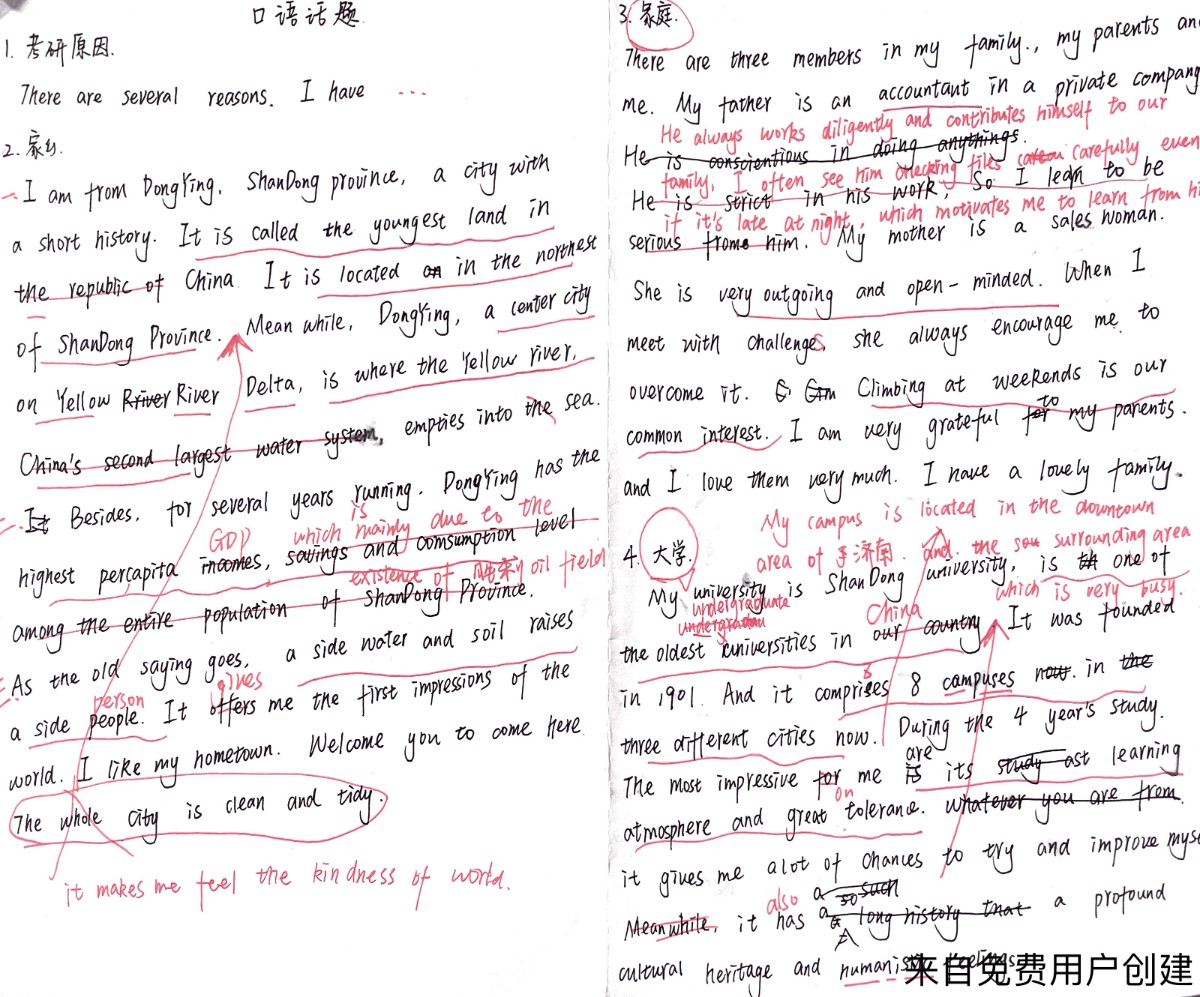 口语话题
1. 考研原因.
There are several reasons. I have ...
2. 家乡.
I am from DongYing, ShanDong province, a city with
a short history. It is called the youngest land in
the republic of China. It is located in the northest
of ShanDong Province. Mean while, DongYing, a center city
on Yellow River Delta, is where the Yellow river,
China's second largest water system, empties into the sea.
Besides, for several years running. DongYing has the
GDP which is mainly due to the
highest percapita incomes, savings and comsumption level
existence of 胜利 oil field
among the entire population of ShanDong Province.
As the old saying goes, a side water and soil raises
person gives
a side people. It offers me the first impressions of the
world. I like my hometown. Welcome you to come here
The whole city is clean and tidy.
it makes me feel the kindness of world.
3. 家庭.
There are three members in my family., my parents and
me. My father is an accountant in a private company
He always works diligently and contributes himself to our
He is conscientious in doing anythings.
family, I often see him checking files carefully even
He is strict in his work, So I learn to be
if it's late at night, which motivates me to learn from hi
serious from him. My mother is a sales woman.
She is very outgoing and open-minded. When I
meet with challenges, she always encourage me to
overcome it. Climbing at weekends is our
common interest. I am very grateful to my parents.
and I love them very much. I have a lovely family.
My campus is located in the downtown
4. 大学. area of 济南. and the surrounding area
My university is ShanDong university, is one of
undergraduate China which is very busy.
the oldest universities in our country. It was founded
in 1901. And it comprises 8 campuses now. in the
three different cities now. During the 4 year's study.
The most impressive for me are its study ast learning
on
atmosphere and great tolerance. whatever you are from.
it gives me alot of chances to try and improve myse
also a so such
Meanwhile, it has a long history that a profound
cultural heritage and
来自免费用户创建